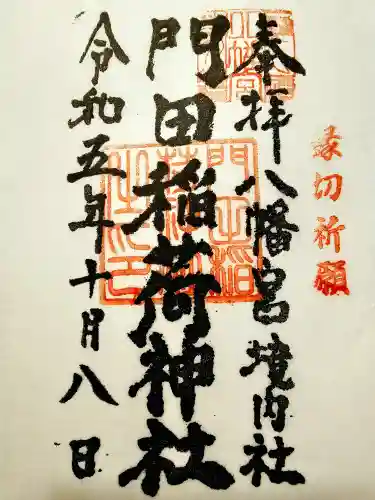 縁切祈願
奉拝八幡宮境内社
門田稲荷神社
令和五年十月八日